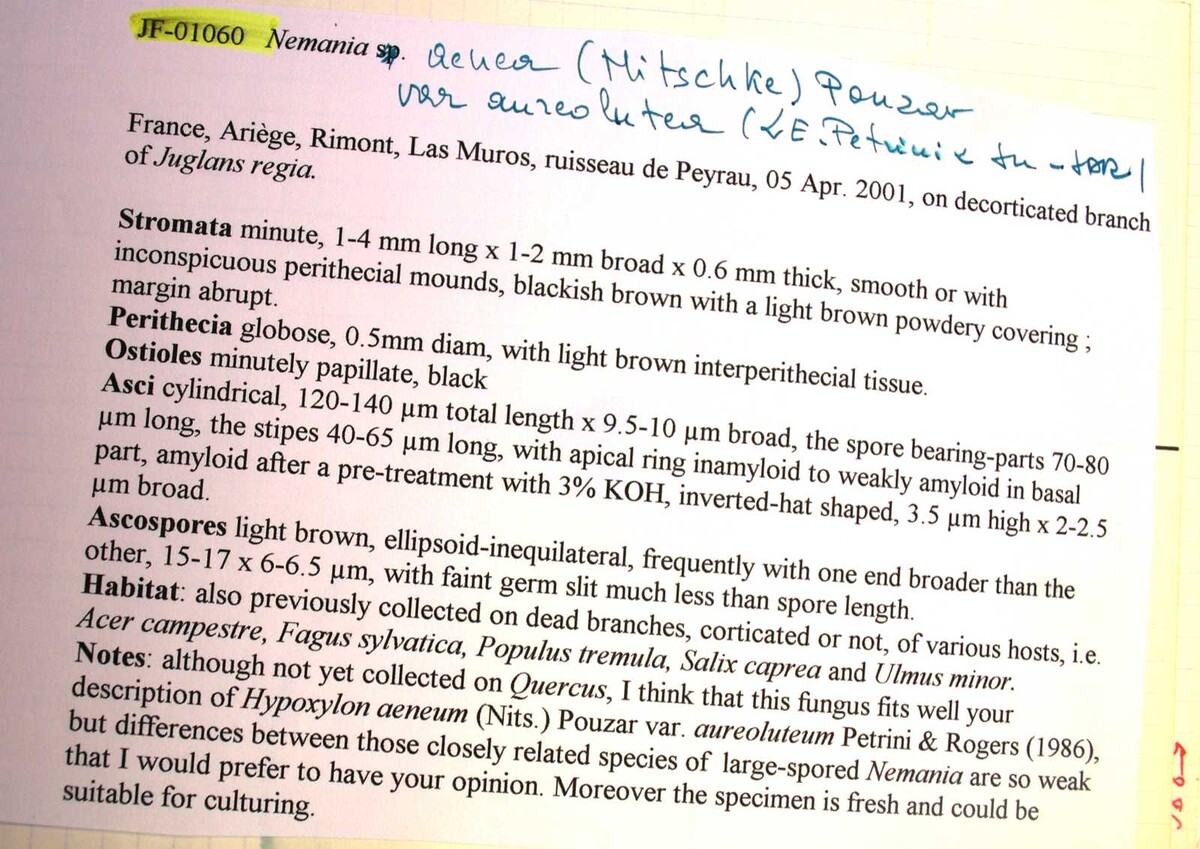 JF-01060 Nemania sp. aenea (Nitschke) Pouzar
var aureolutea (LE. Petrini &
France, Ariège, Rimont, Las Muros, ruisseau de Peyrau, 05 Apr. 2001, on decorticated branch
of Juglans regia.
Stromata minute, 1-4 mm long x 1-2 mm broad x 0.6 mm thick, smooth or with
inconspicuous perithecial mounds, blackish brown with a light brown powdery covering ;
margin abrupt.
Perithecia globose, 0.5mm diam, with light brown interperithecial tissue.
Ostioles minutely papillate, black
Asci cylindrical, 120-140 µm total length x 9.5-10 µm broad, the spore bearing-parts 70-80
µm long, the stipes 40-65 µm long, with apical ring inamyloid to weakly amyloid in basal
part, amyloid after a pre-treatment with 3% KOH, inverted-hat shaped, 3.5 µm high x 2-2.5
µm broad.
Ascospores light brown, ellipsoid-inequilateral, frequently with one end broader than the
other, 15-17 x 6-6.5 µm, with faint germ slit much less than spore length.
Habitat: also previously collected on dead branches, corticated or not, of various hosts, i.e.
Acer campestre, Fagus sylvatica, Populus tremula, Salix caprea and Ulmus minor.
Notes: although not yet collected on Quercus, I think that this fungus fits well your
description of Hypoxylon aeneum (Nits.) Pouzar var. aureoluteum Petrini & Rogers (1986),
but differences between those closely related species of large-spored Nemania are so weak
that I would prefer to have your opinion. Moreover the specimen is fresh and could be
suitable for culturing.